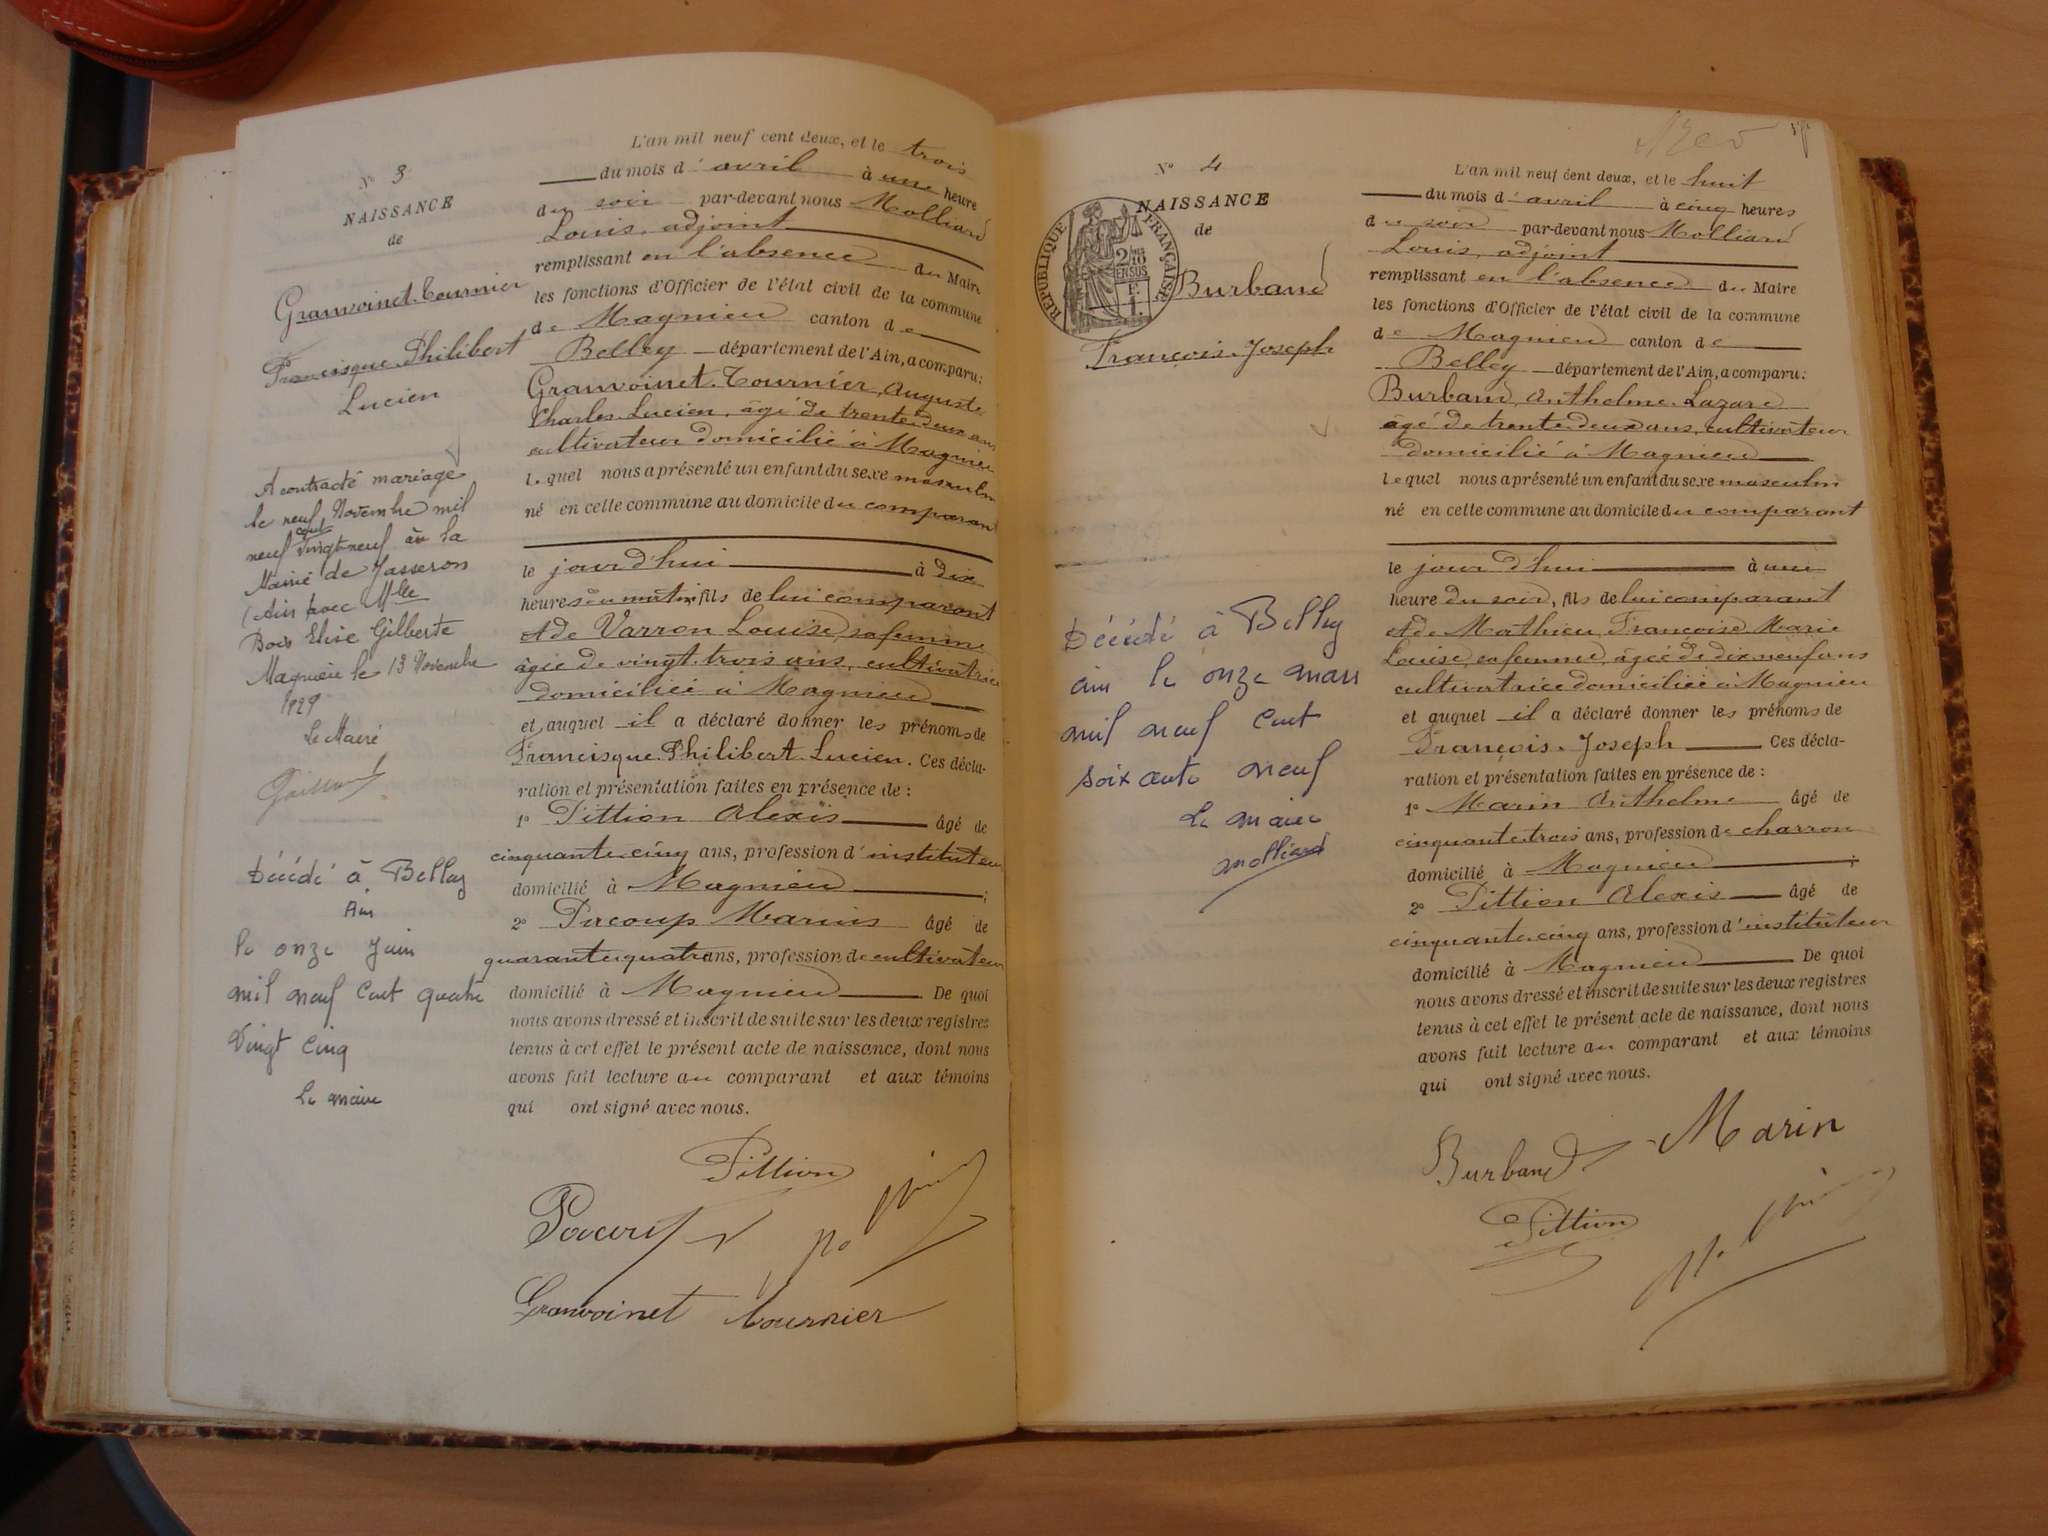 N° 3
NAISSANCE
de
Granvoinet-Tournier
Francisque Philibert
Lucien
A contracté mariage
le neuf Novembre mil
neuf cent vingt neuf à la
Mairie de Jasseron
(Ain) avec Mlle
Bois Elise Gilberte
Magnieu le 13 Novembre
1929
Le Maire
Décédé à Belley
Ain
le onze Juin
mil neuf cent quatre
Vingt cinq
Le maire
L'an mil neuf cent deux, et le trois
du mois d'avril à une heure
du soir par-devant nous Molliard
Louis, adjoint
remplissant en l'absence du Maire
les fonctions d'Officier de l'état civil de la commune
de Magnieu canton de
Belley département de l'Ain, a comparu:
Granvoinet-Tournier, Auguste
Charles Lucien, âgé de trente deux ans
cultivateur domicilié à Magnieu
lequel nous a présenté un enfant du sexe masculin
né en cette commune au domicile du comparant
le jourd'hui à dix
heures du matin, fils de lui comparant
et de Varron Louise, sa femme
âgée de vingt-trois ans, cultivatrice
domiciliée à Magnieu
et auquel il a déclaré donner les prénoms de
Francisque Philibert Lucien. Ces décla-
ration et présentation faites en présence de :
1° Pittion Alexis âgé de
cinquante-cinq ans, profession d'instituteur
domicilié à Magnieu ;
2° Pacoup Marius âgé de
quarante-quatre ans, profession de cultivateur
domicilié à Magnieu De quoi
nous avons dressé et inscrit de suite sur les deux registres
tenus à cet effet le présent acte de naissance, dont nous
avons fait lecture au comparant et aux témoins
qui ont signé avec nous.
Pittion
Granvoinet Tournier
N° 4
NAISSANCE
de
RÉPUBLIQUE FRANÇAISE
2/10 EN SUS
Burband
François-Joseph
Décédé à Belley
ain le onze mars
mil neuf cent
soixante neuf
Le maire
Molliard
L'an mil neuf cent deux, et le huit
du mois d'avril à cinq heures
du soir par-devant nous Molliard
Louis, adjoint
remplissant en l'absence du Maire
les fonctions d'Officier de l'état civil de la commune
de Magnieu canton de
Belley département de l'Ain, a comparu:
Burband, Anthelme-Lazare
âgé de trente deux ans, cultivateur
domicilié à Magnieu
lequel nous a présenté un enfant du sexe masculin
né en cette commune au domicile du comparant
le jourd'hui à une
heure du soir, fils de lui comparant
et de Mathieu, Françoise Marie
Louise, sa femme, âgée de dix-neuf ans
cultivatrice domiciliée à Magnieu
et auquel il a déclaré donner les prénoms de
François-Joseph Ces décla-
ration et présentation faites en présence de :
1° Marin Anthelme âgé de
cinquante-trois ans, profession de charron
domicilié à Magnieu ;
2° Pittion Alexis âgé de
cinquante-cinq ans, profession d'instituteur
domicilié à Magnieu De quoi
nous avons dressé et inscrit de suite sur les deux registres
tenus à cet effet le présent acte de naissance, dont nous
avons fait lecture au comparant et aux témoins
qui ont signé avec nous.
Burband Marin
Pittion